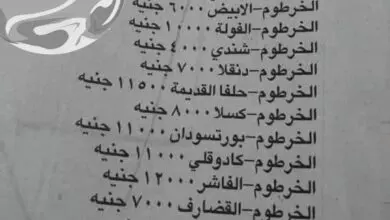 الخرطوم-الابيض ٦٠٠٠ جنيه
الخرطوم-الفولة ١٠٠٠٠ جنيه
الخرطوم-شندي ٤٠٠٠ جنيه
الخرطوم-دنقلا ٧٠٠٠ جنيه
الخرطوم-حلفا القديمة ١١٥٠٠ جنيه
الخرطوم-كسلا ٨٠٠٠ جنيه
الخرطوم-بورتسودان ١١٠٠٠ جنيه
الخرطوم-كادوقلي ١١٠٠٠ جنيه
الخرطوم-الفاشر ١٢٠٠٠ جنيه
الخرطوم-القضارف ٧٠٠٠ جنيه